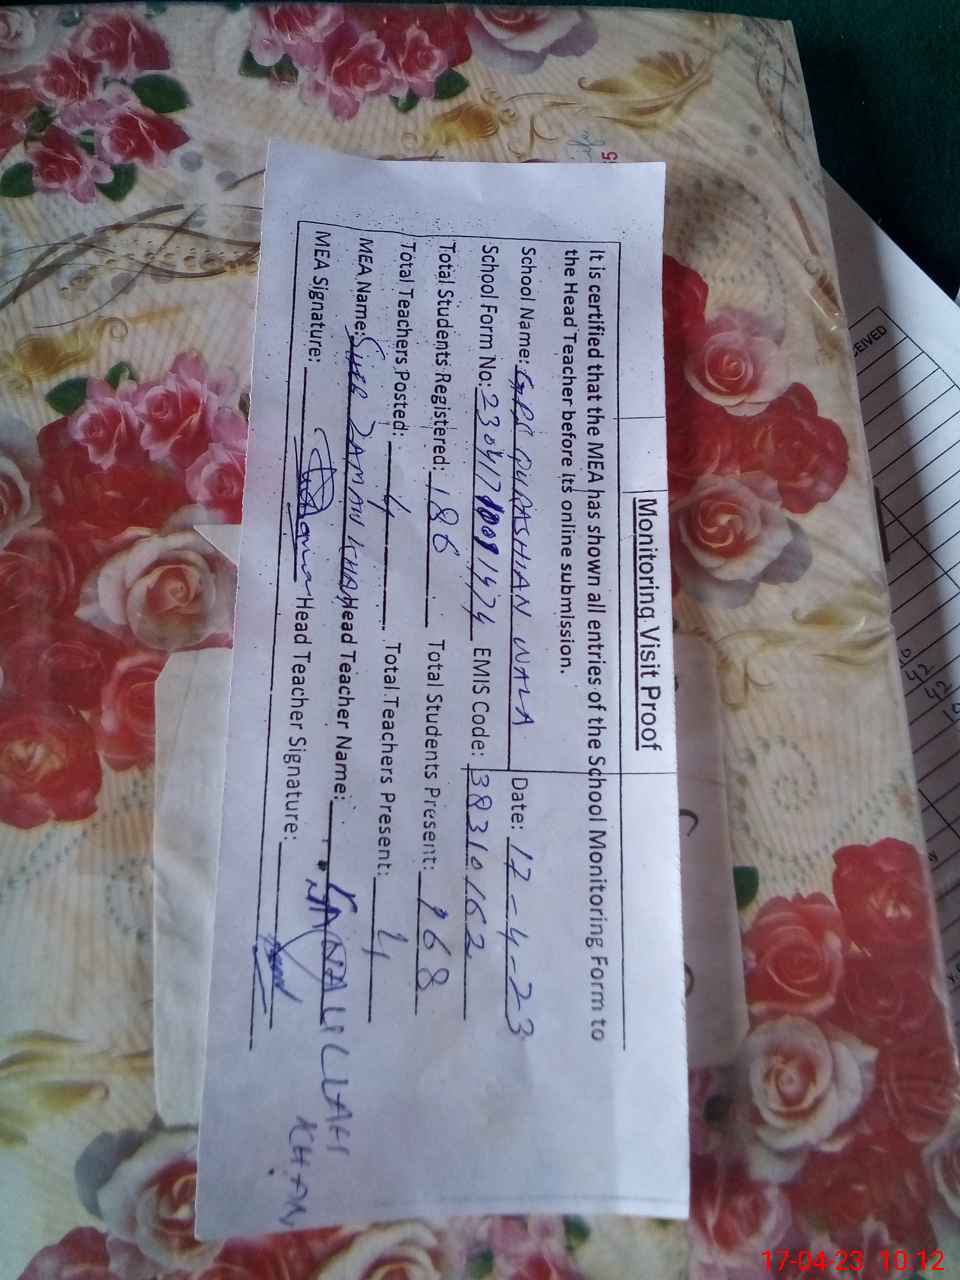 Monitoring Visit Proof
It is certified that the MEA has shown all entries of the School Monitoring Form to
the Head Teacher before its online submission.
School Name: GPS QURASHIAN WALA Date: 17-4-23
School Form No: EMIS Code: 38310162
Total Students Registered: 186 Total Students Present: 168
Total Teachers Posted: 4 Total Teachers Present: 4
MEA Name: SHER ZAMAN KHAN Head Teacher Name: KHAN
MEA Signature: Head Teacher Signature:
CEIVED
42
42
17-04-23 10:12